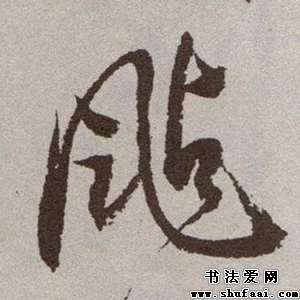 颭
书法爱网
www.shufaai.com